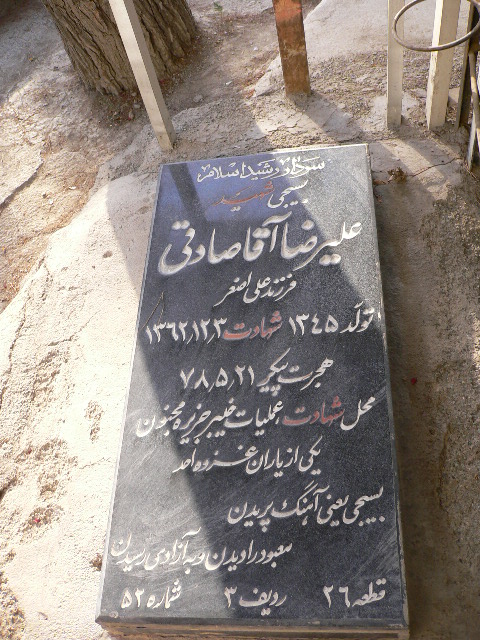 سردار رشید اسلام
بسیجی شهید
علیرضا آقاصادقی
فرزند علی اصغر
تولد ۱۳۴۵ شهادت ۱۳۶۲٫۱۲٫۳
هجرت پیکر ۷۸٫۵٫۲۱
محل شهادت عملیات خیبر جزیره مجنون
یکی از یاران غزوه احد
بسیجی یعنی آهنگ پریدن
معبود را دیدن و به آزادی رسیدن
قطعه ۲۶ ردیف ۳ شماره ۵۲